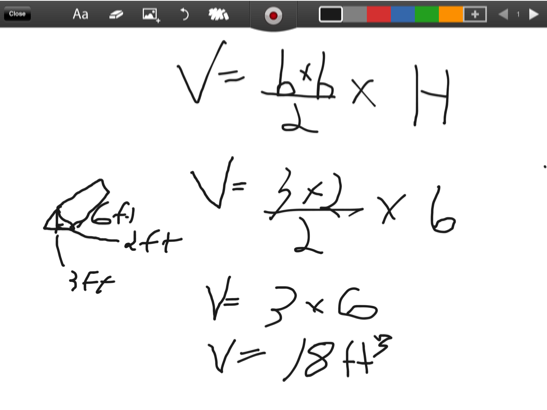 Close
Aa
1
V = b×b/2 × H
V = 3×2/2 × 6
6ft
2ft
3Ft
V= 3 × 6
V= 18 ft³